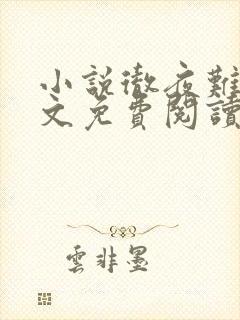 小說徹夜難
文免費閱讀
雲非墨